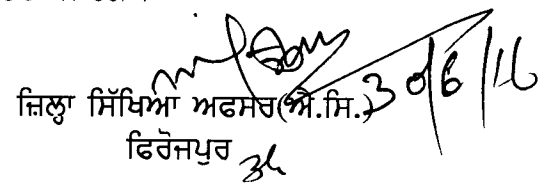 ਜ਼ਿਲ੍ਹਾ ਸਿੱਖਿਆ ਅਫਸਰ(ਐ.ਸਿ.) 30/6/16
ਫਿਰੋਜਪੁਰ